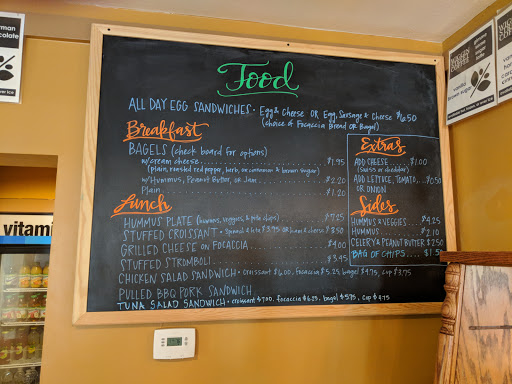 Food
ALL DAY EGG SANDWICHES - Egg & Cheese OR Egg, Sausage & Cheese $6.50
(choice of Focaccia Bread OR Bagel)
Breakfast
BAGELS (check board for options)
w/cream cheese $1.95
(plain, roasted red pepper, herb, or cinnamon & brown sugar)
w/Hummus, Peanut Butter, or Jam $2.20
Plain $1.20
Lunch
HUMMUS PLATE (hummus, veggies, & pita chips) $7.25
STUFFED CROISSANT - Spinach & feta $3.75 OR ham & cheese $3.50
GRILLED CHEESE ON FOCACCIA $4.00
STUFFED STROMBOLI $3.95
CHICKEN SALAD SANDWICH - croissant $6.00, focaccia $5.25, bagel $4.75, cup $3.75
PULLED BBQ PORK SANDWICH
TUNA SALAD SANDWICH - croissant $7.00, focaccia $6.25, bagel $5.75, cup $4.75
Extras
ADD CHEESE $1.00
(swiss or cheddar)
ADD LETTUCE, TOMATO, $0.50
OR ONION
Sides
HUMMUS & VEGGIES $4.25
HUMMUS $2.10
CELERY & PEANUT BUTTER $2.50
BAG OF CHIPS $1.50
vitami
COFFEE
vanilla
brown sugar